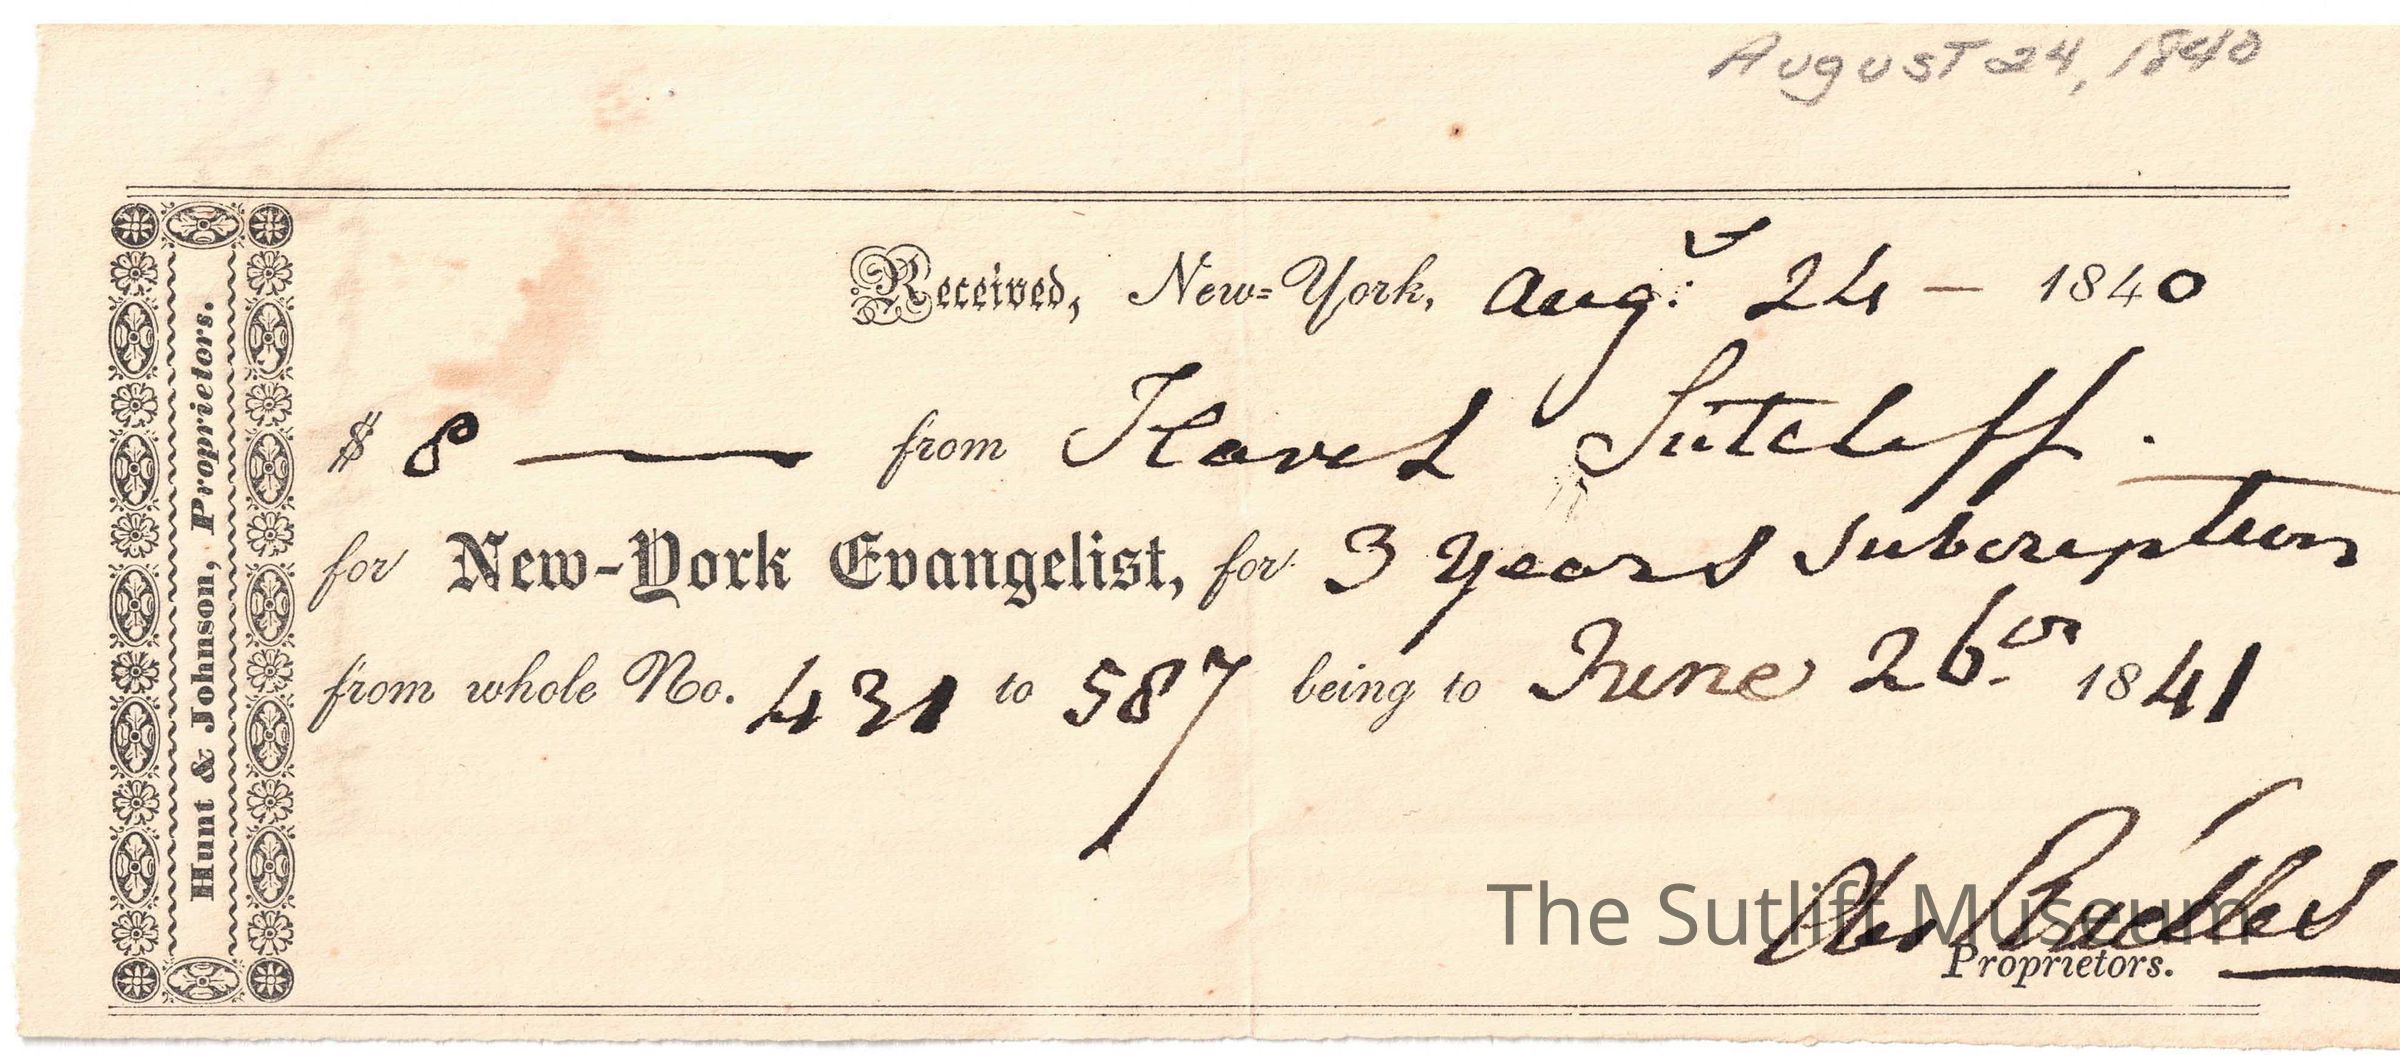 August 24, 1840
Received, New-York, Aug:t 24 — 1840
$ 8 — from Flavel Sutcleff.
for New-York Evangelist, for 3 Years Subcription
from whole No. 431 to 587 being to June 26. 1841
The Sutliff Museum
Proprietors.
Hunt & Johnson, Proprietors.